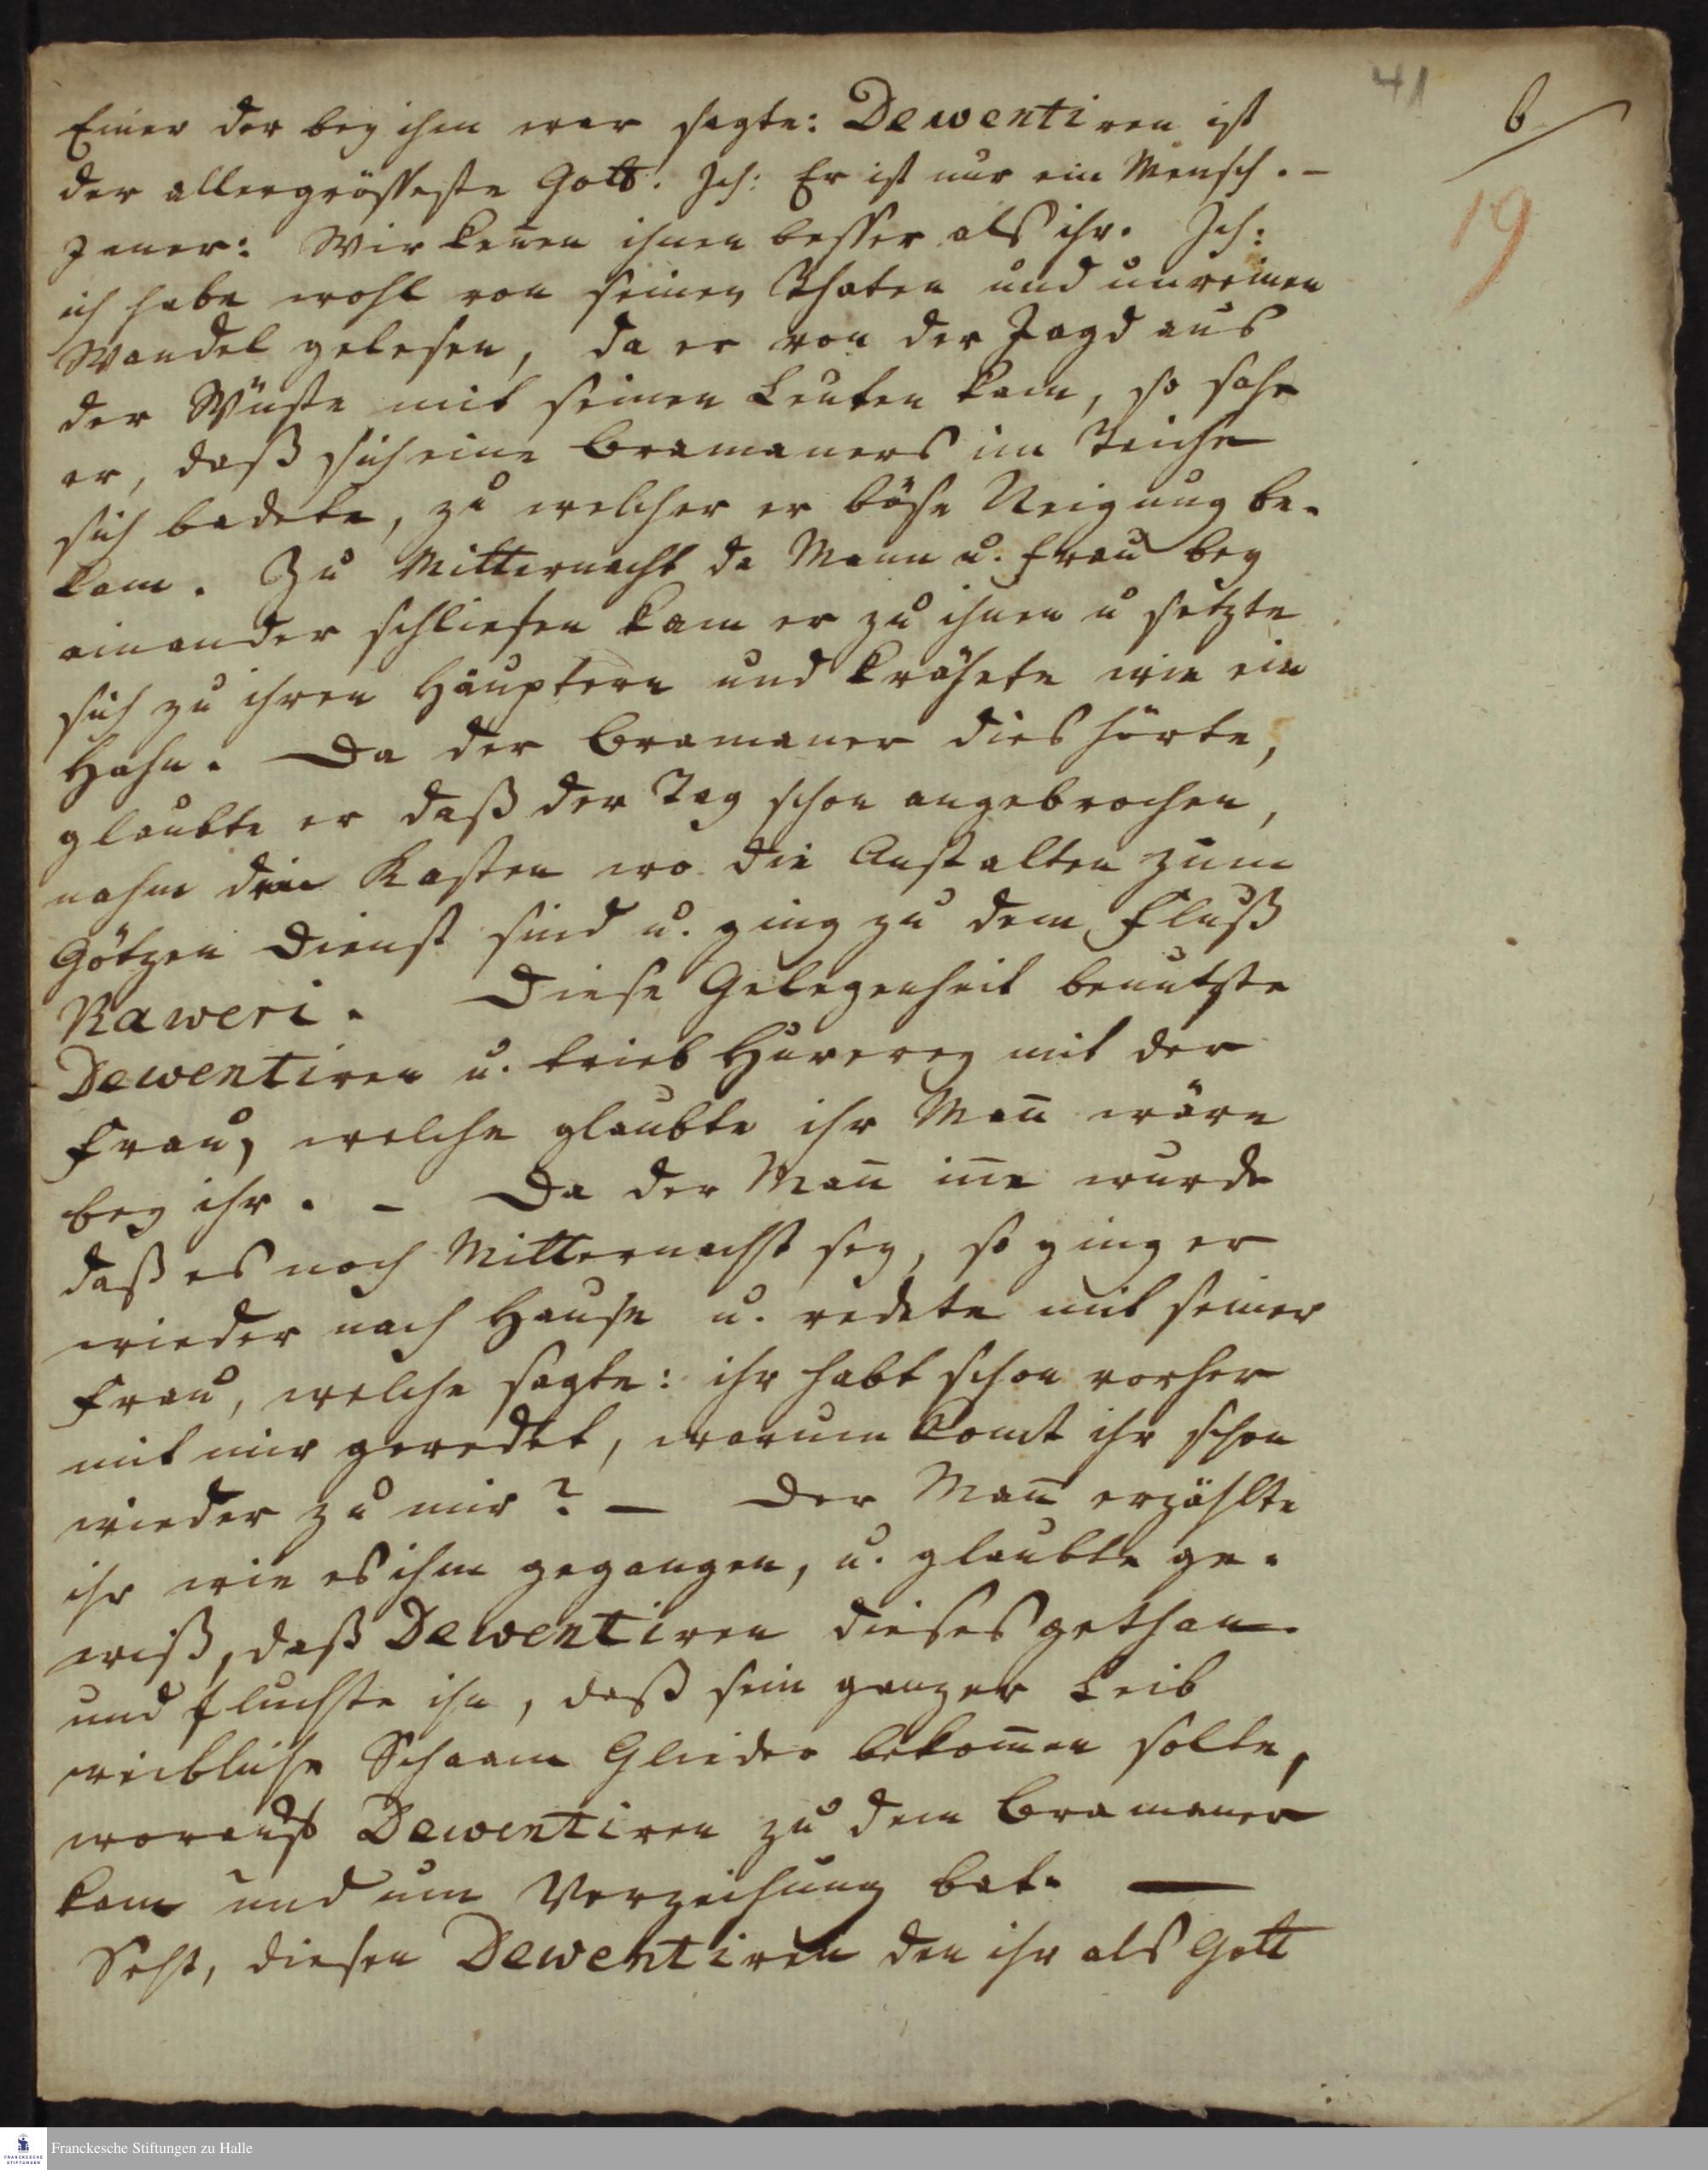 41
6
19
Einer der bey ihm war sagte: Dewentiren ist
der allergrösseste Gott. Ich: Er ist nur ein Mensch. –
Jener: Wir keñen ihnen besser als ihr. Ich:
ich habe wohl von seinen Thaten und unreinen
Wandel gelesen, da er von der Jagd aus
der Wüste mit seinen Leuten kam, so sahe
er, daß sich eine Bramaners im Teiche
sich badete, zu welcher er böse Neigung be-
kam. Zu Mitternacht da Mann u. Frau bey
einander schliefen kam er zu ihnen u setzte
sich zu ihren Häuptern und krähete wie ein
Hahn. Da der Bramaner dies hörte,
glaubte er daß der Tag schon angebrochen,
nahm den Kasten wo die Anstalten zum
Götzen Dienst sind u. ging zu dem Fluß
Kaweri. Diese Gelegenheit benutzte
Dewentiren u. trieb Hurerey mit der
Frau, welche glaubte ihr Mañ wäre
bey ihr. – Da der Mañ iñe wurde
daß es noch Mitternacht sey, so ging er
wieder nach Hause u. redete mit seiner
Frau, welche sagte: ihr habt schon vorher
mit mir geredet, warum komt ihr schon
wieder zu mir? – Der Mañ erzählte
ihr wie es ihm gegangen, u. glaubte ge-
wiß, daß Dewentiren dieses gethan
und fluchte ihn, daß sein ganzer Leib
weibliche Schaam Glieder bekom̄en solte,
worauf Dewentiren zu dem Bramaner
kam und um Verzeihung bat. —
Seht, diesen Dewentiren den ihr als Gott
Franckesche Stiftungen zu Halle